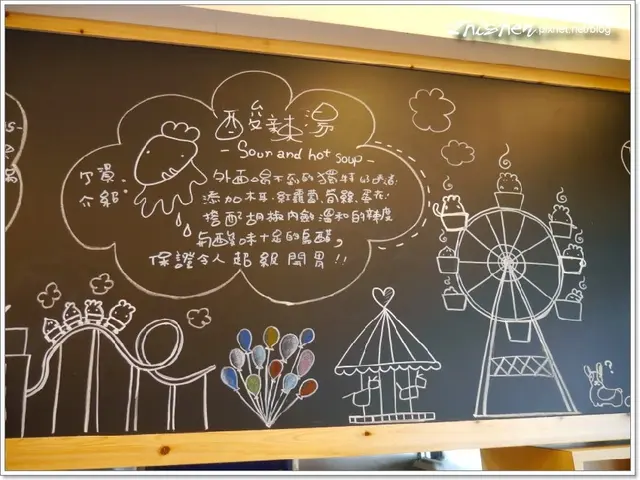 酸辣湯
- Sour and hot soup -
外面喝不到的獨特的味道
添加木耳、紅蘿蔔、筍絲、蛋花!
搭配胡椒內斂溫和的辣度
與酸味十足的烏醋,
保證令人超級開胃!!
介紹:
pixnet.net/blog